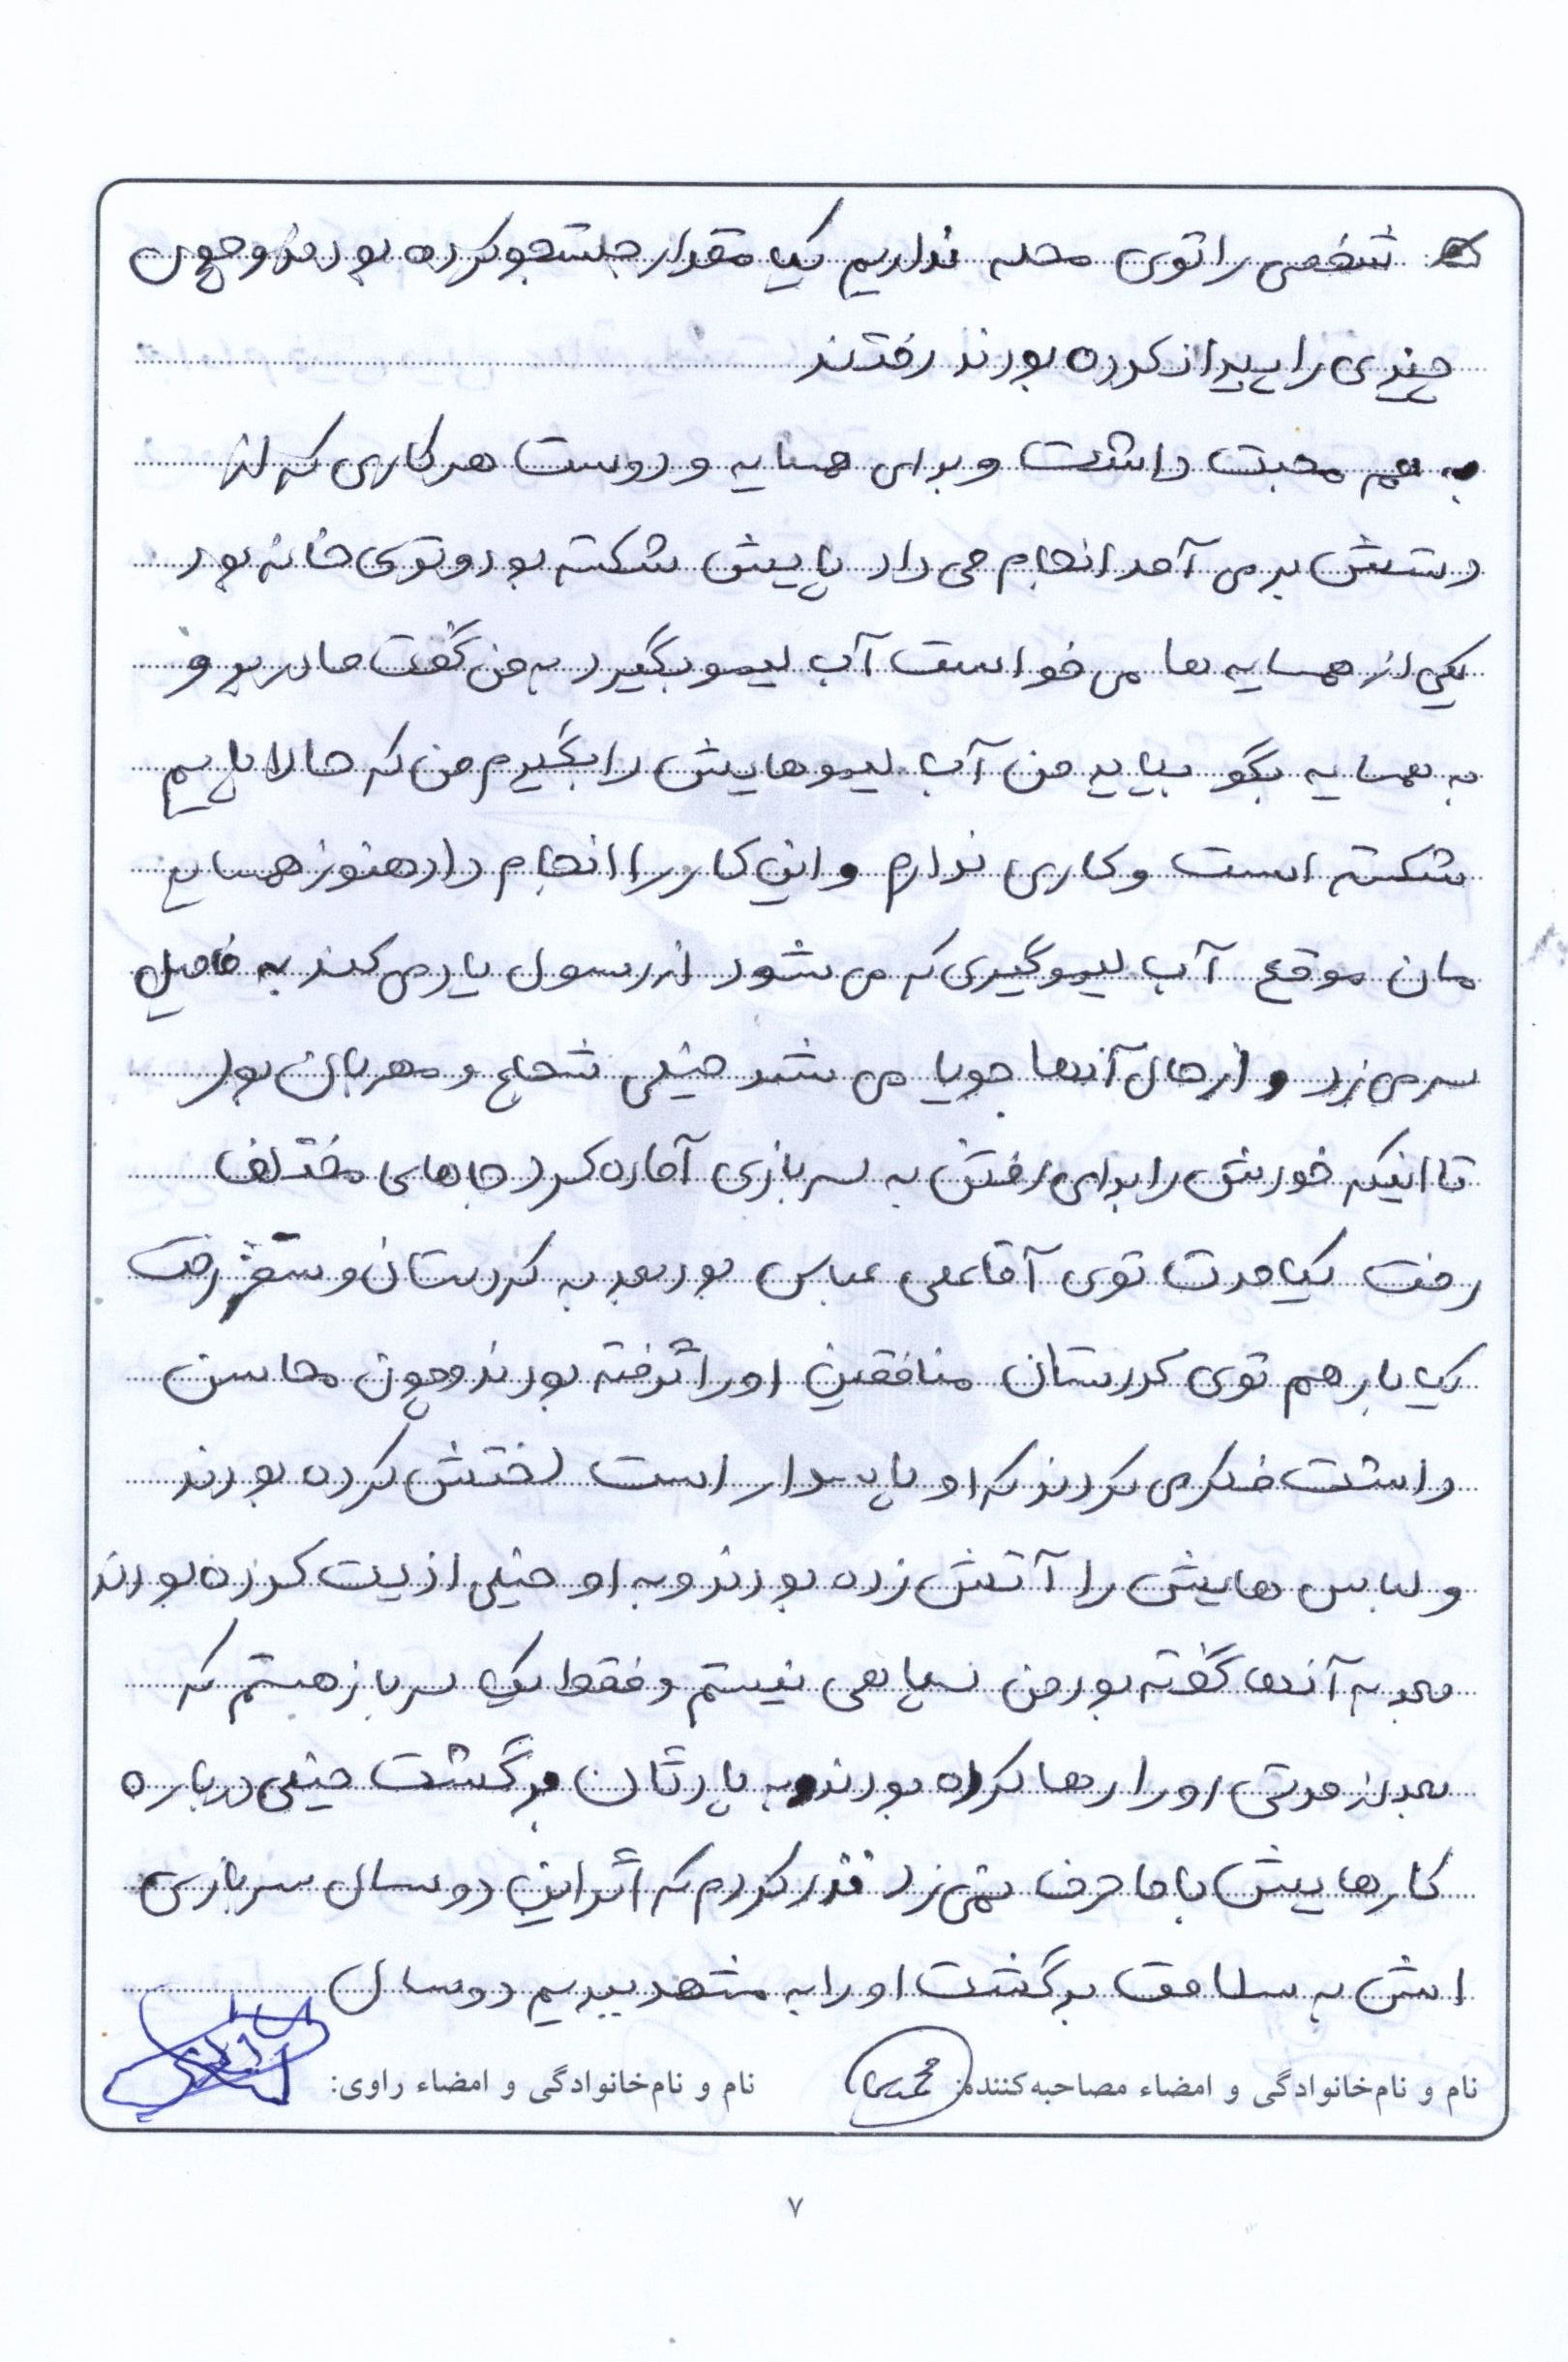 شخصی را توی محله نداریم یک مقدار جستجو کرده بودند و چون
چیزی را پیدا نکرده بودند رفتند
به هم محبت داشت و برای همسایه و دوست هر کاری که از
دستش بر می آمد انجام می داد پایش شکسته بود و توی خانه بود
یکی از همسایه ها می خواست آب لیمو بگیرد به من گفت مادر برو
به همسایه بگو بیاید من آب لیموهایش را بگیرم من که حالا پایم
شکسته است و کاری ندارم و این کار را انجام داد هنوز همسایه
مان موقع آب لیموگیری که می شود از رسول یاد می کند به فامیل
سر می زد و از حال آنها جویا می شد خیلی شجاع و مهربان بود
تا اینکه خودش را برای رفتن به سربازی آماده کرد جاهای مختلف
رفت یک مدت توی آقاعلی عباس بود بعد به کردستان و سقز رفت
یک بار هم توی کردستان منافقین او را گرفته بودند و چون محاسن
داشت فکر می کردند که او پاسدار است لختش کرده بودند
و لباس هایش را آتش زده بودند و به او خیلی اذیت کرده بودند
بعد به آنها گفته بود من سپاهی نیستم و فقط یک سرباز هستم که
بعد از مدتی او را رها کرده بودند و به پادگان برگشت خیلی درباره
کارهایش با ما حرف نمی زد نذر کردم که اگر این دو سال سربازی
اش به سلامت برگشت او را به مشهد ببریم دو سال
نام و نام‌خانوادگی و امضاء مصاحبه‌کننده: نام و نام‌خانوادگی و امضاء راوی:
۷